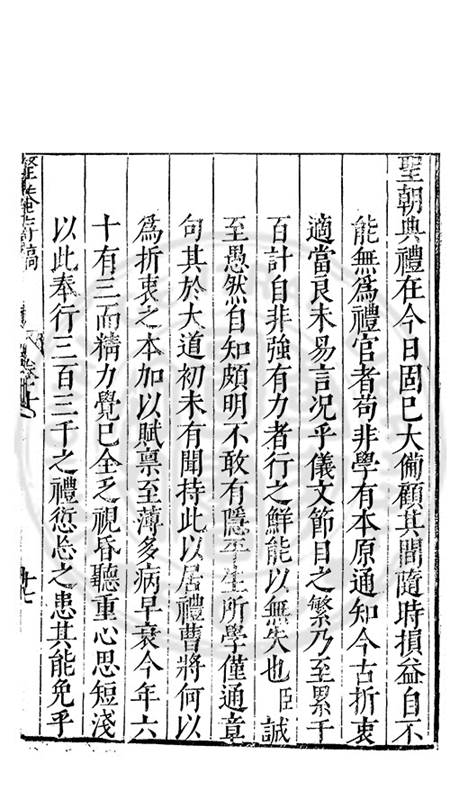 聖朝典禮在今日固已大備顧其間隨時損益自不
能無爲禮官者苟非學有本原通知今古折衷
適當良未易言況乎儀文節目之繁乃至累千
百計自非強有力者行之鮮能以無失也臣誠
至愚然自知頗明不敢有隱平生所學僅通章
句其於大道初未有聞持此以居禮曹將何以
爲折衷之本加以賦禀至薄多病早衰今年六
十有三而精力覺已全乏視昏聽重心思短淺
以此奉行三百三千之禮愆忘之患其能免乎
整菴存稿
十七